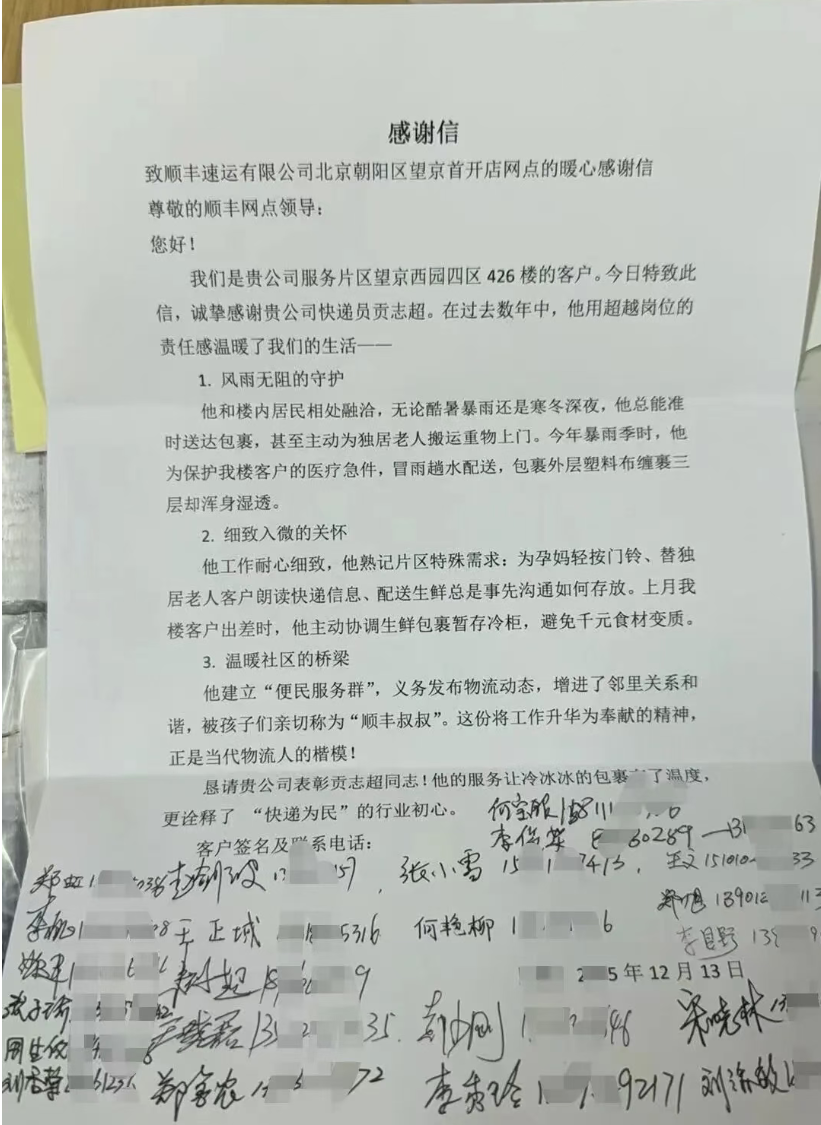 感谢信
致顺丰速运有限公司北京朝阳区望京首开店网点的暖心感谢信
尊敬的顺丰网点领导：
您好！
我们是贵公司服务片区望京西园四区 426 楼的客户。今日特致此
信，诚挚感谢贵公司快递员贡志超。在过去数年中，他用超越岗位的
责任感温暖了我们的生活——
1. 风雨无阻的守护
他和楼内居民相处融洽，无论酷暑暴雨还是寒冬深夜，他总能准
时送达包裹，甚至主动为独居老人搬运重物上门。今年暴雨季时，他
为保护我楼客户的医疗急件，冒雨趟水配送，包裹外层塑料布缠裹三
层却浑身湿透。
2. 细致入微的关怀
他工作耐心细致，他熟记片区特殊需求：为孕妈轻按门铃、替独
居老人客户朗读快递信息、配送生鲜总是事先沟通如何存放。上月我
楼客户出差时，他主动协调生鲜包裹暂存冷柜，避免千元食材变质。
3. 温暖社区的桥梁
他建立“便民服务群”，义务发布物流动态，增进了邻里关系和
谐，被孩子们亲切称为“顺丰叔叔”。这份将工作升华为奉献的精神，
正是当代物流人的楷模！
恳请贵公司表彰贡志超同志！他的服务让冷冰冰的包裹 了温度，
更诠释了 “快递为民”的行业初心。
客户签名及联系电话：
张小雪 15 王文 151010 33
郑旭 13901
王正城 5316 何艳柳 1 6
5 年 12 月 13 日
35
宋晓林
72 李秀玲 92171